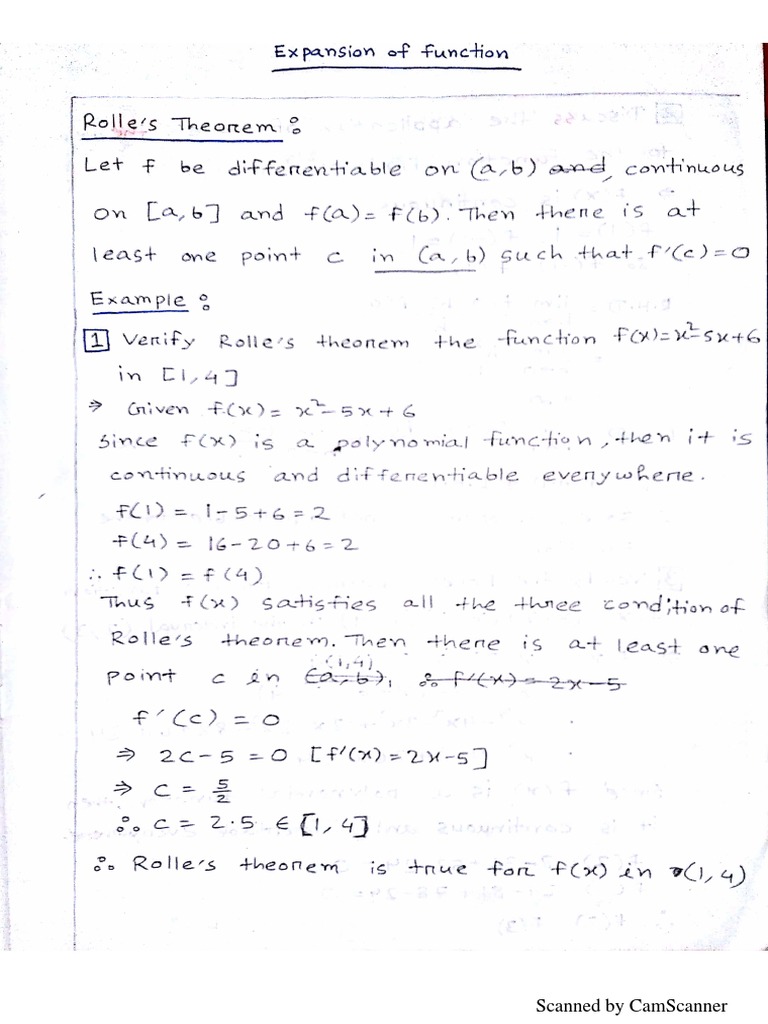 Expansion of function
Rolle's Theorem :
Let f be differentiable on (a,b) and, continuous
on [a,b] and f(a)= f(b). Then there is at
least one point c in (a,b) such that f'(c)=0
Example :
1 Verify Rolle's theorem the function f(x)=x²-5x+6
in [1,4]
⇒ Given f(x)= x²-5x+6
Since f(x) is a polynomial function, then it is
continuous and differentiable everywhere.
f(1) = 1-5+6=2
f(4) = 16-20+6=2
∴ f(1) = f(4)
Thus f(x) satisfies all the three condition of
Rolle's theorem. Then there is at least one
(1,4)
point c in (a,b), ∴ f'(x)=2x-5
f'(c) = 0
⇒ 2c-5 = 0 [f'(x)=2x-5]
⇒ c = 5/2
∴ c = 2.5 ∈ [1,4]
∴ Rolle's theorem is true for f(x) in (1,4)
Scanned by CamScanner